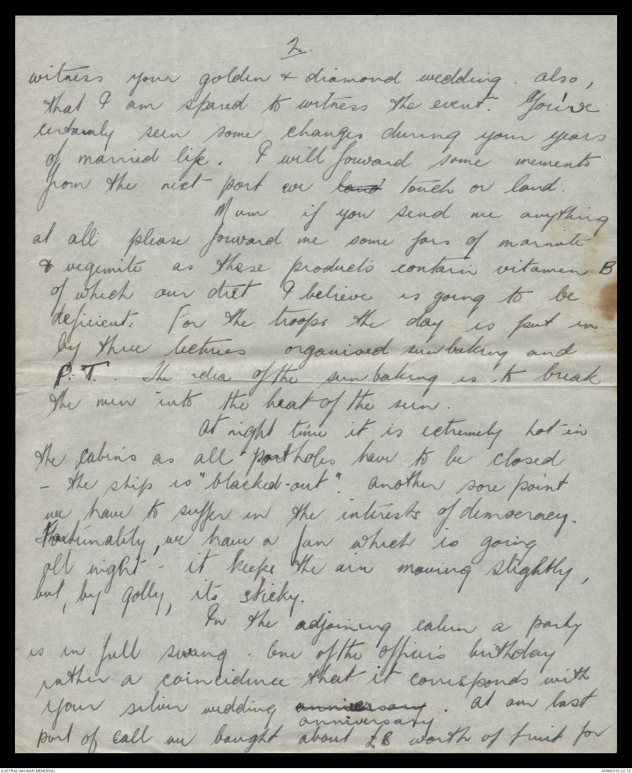 2.
witness your golden & diamond wedding. also,
that I am spared to witness the event. You've
certainly seen some changes during your years
of married life. I will forward some memento
from the next port we land touch or land.
Mum if you send me anything
at all please forward me some jars of marmite
& vegimite as these products contain vitamen B
of which our diet I believe is going to be
deficient. For the troops the day is put in
by three lectures organised sun baking and
P.T.. The idea of the sun baking is to break
the men into the heat of the sun.
At night time it is extremely hot in
the cabins as all portholes have to be closed
- the ship is "blacked-out". another sore point
we have to suffer in the interests of democracy.
Fortunately, we have a fan which is going
all night - it keeps the air moving slightly,
but, by golly, its sticky.
In the adjoining cabin a party
is in full swing. One of the officers birthday
rather a coincidence that it corresponds with
your silver wedding anniversary. At our last
anniversary
port of call we bought about £8 worth of fruit for
AUSTRALIAN WAR MEMORIAL